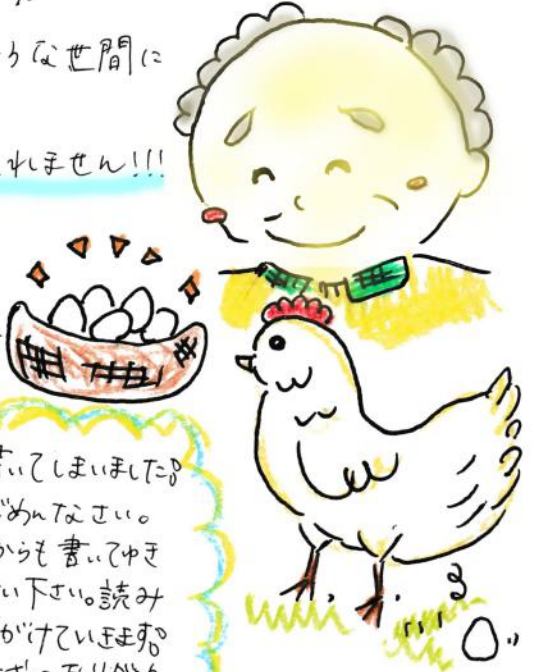 うな世間に
れしません!!!
書いてしまいました。
ごめんなさい。
からも書いてゆき
い下さい。読み
がけていきます。